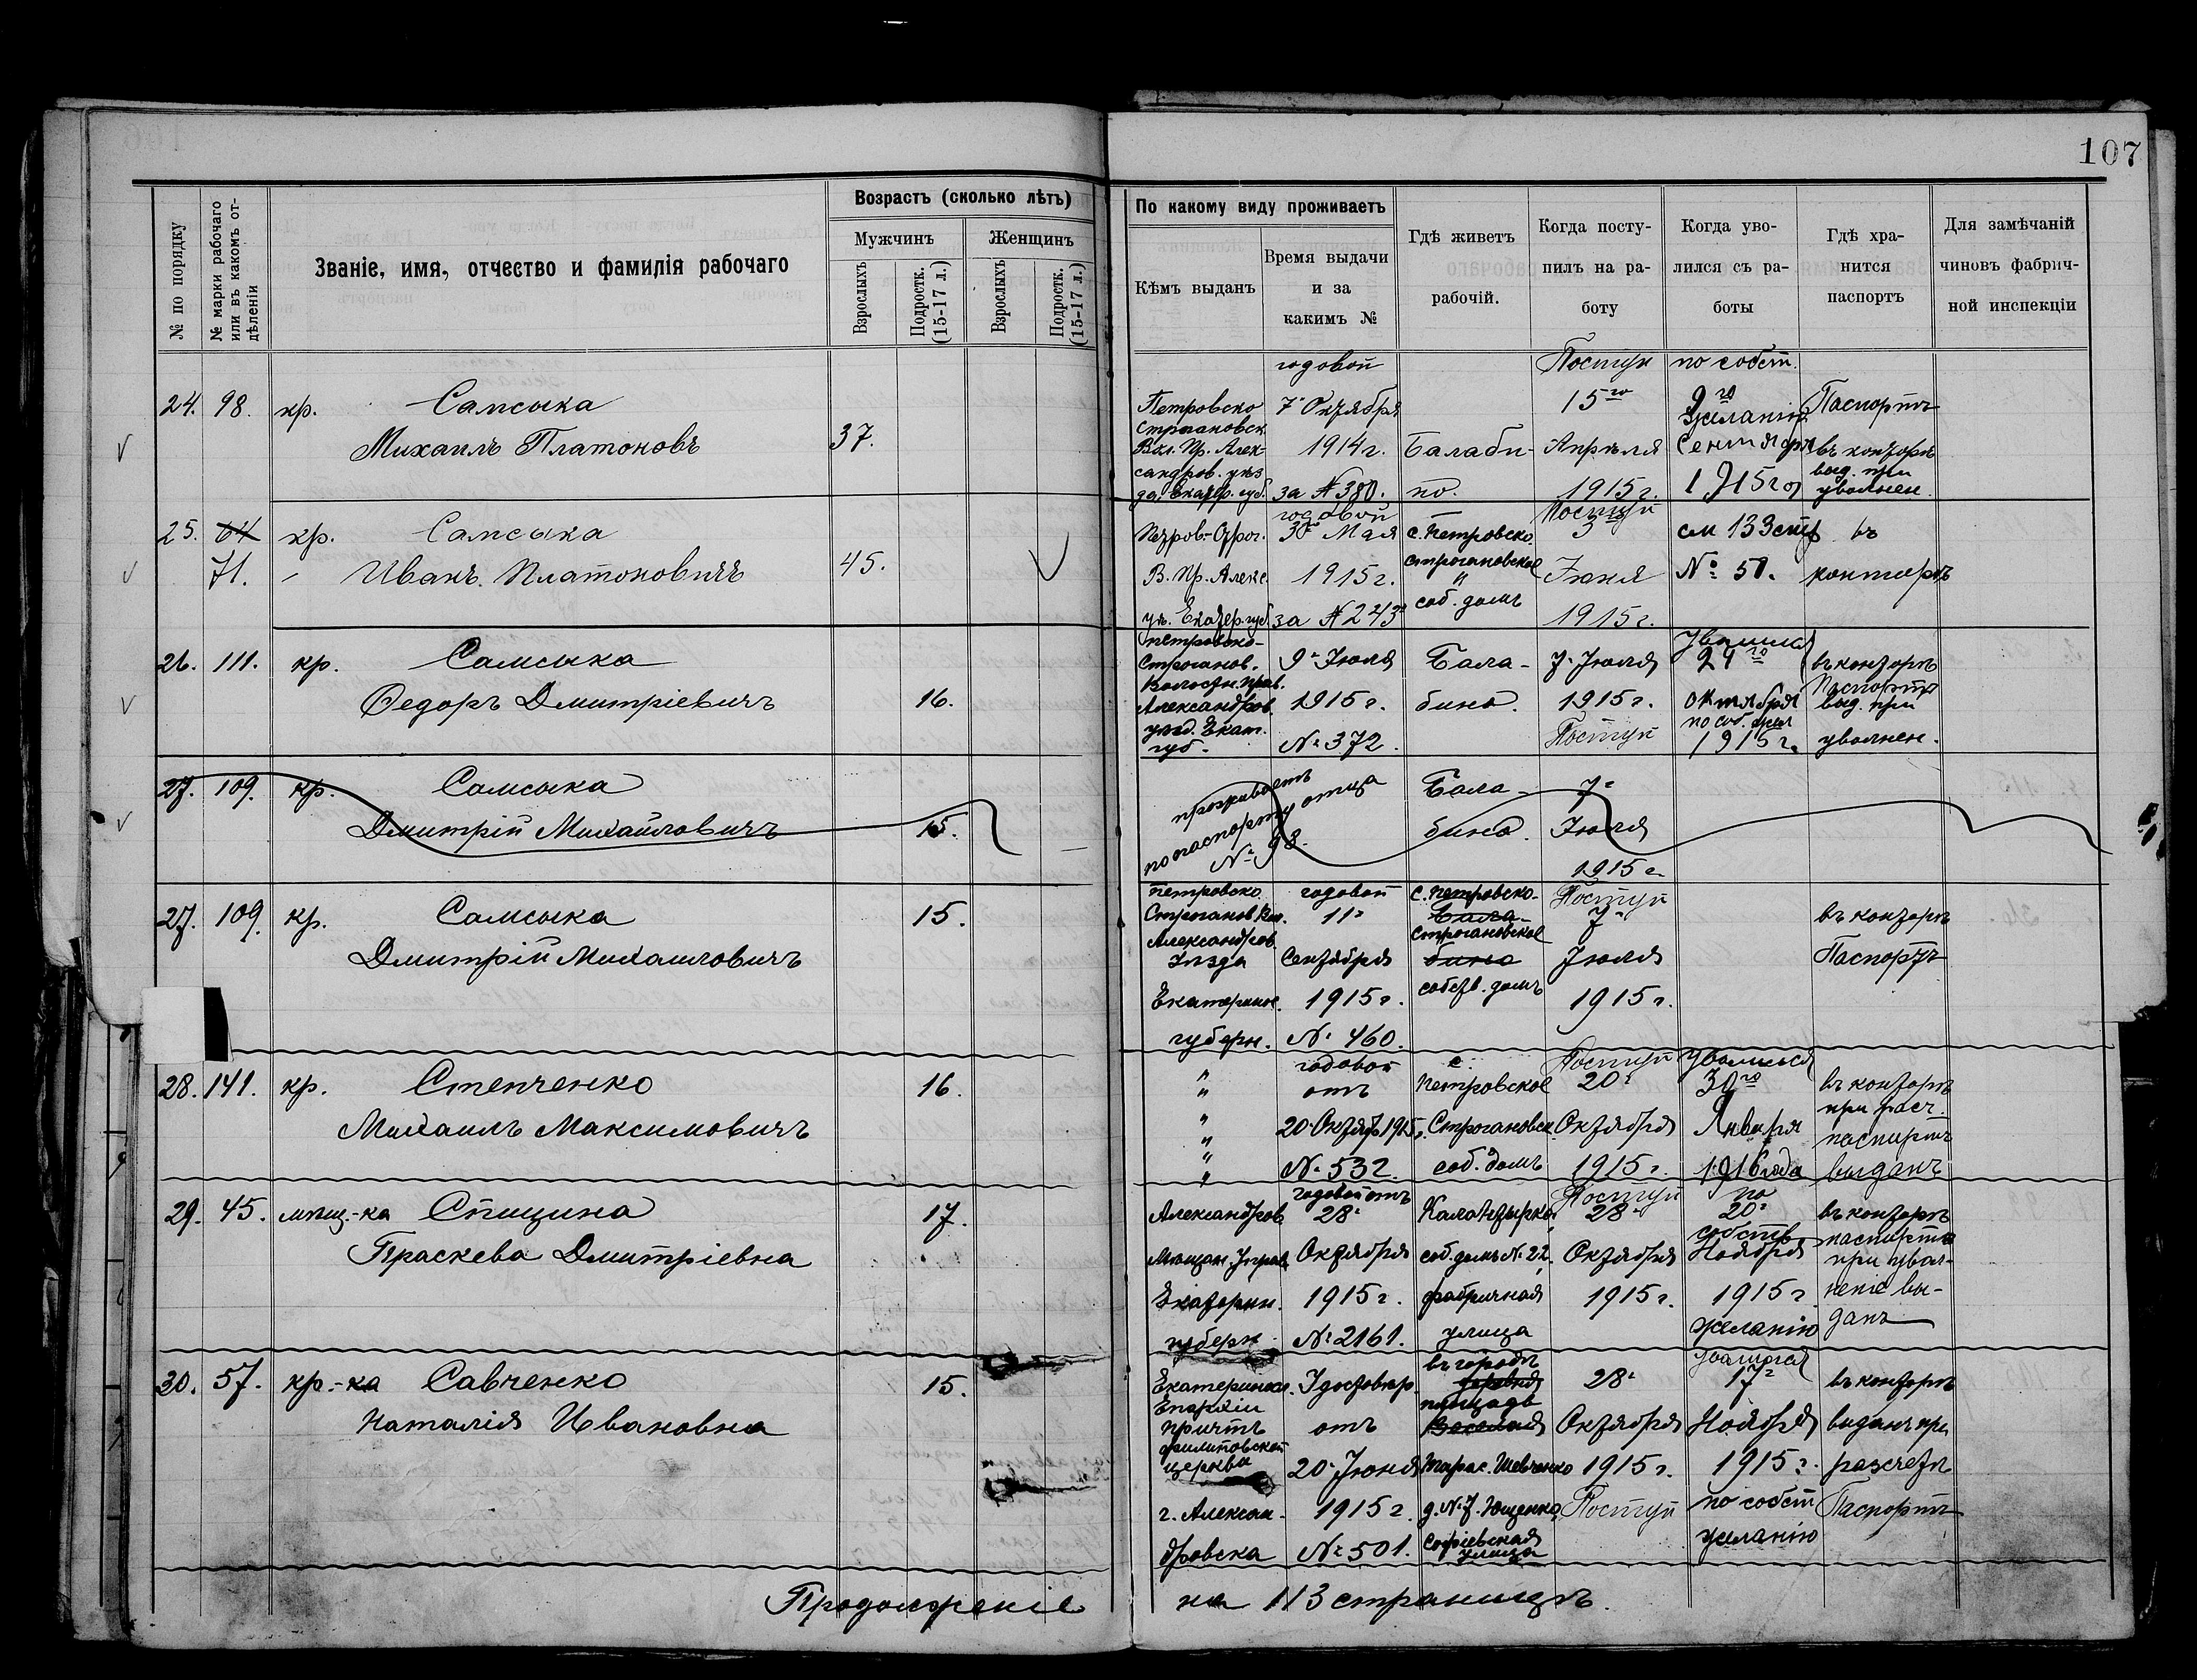 107
№ по порядку
№ марки рабочаго или въ какомъ отдѣленіи
Званіе, имя, отчество и фамилія рабочаго
Возрастъ (сколько лѣтъ)
Мужчинъ
Женщинъ
Взрослыхъ
Подростк. (15-17 л.)
Взрослыхъ
Подростк. (15-17 л.)
По какому виду проживаетъ
Кѣмъ выданъ
Время выдачи
и за
какимъ №
Гдѣ живетъ
рабочій.
Когда посту-
пилъ на ра-
боту
Когда уво-
лился съ ра-
боты
Гдѣ хра-
нится
паспортъ
Для замѣчаній
чиновъ фабрич-
ной инспекціи
24. 98. кр. Самсыка
Михаилъ Платоновъ
37.
Петровско
Строгановск.
Вол. Пр. Алек-
сандров. уѣз
да Екатер. губ.
годовой
7 Октября
1914 г.
за № 380.
Балаби-
но.
Поступ
15го
Апрѣля
1915 г.
по собст.
9го
желанію
Сентября
1915 го
Паспортъ
въ конторѣ
выд. при
увольнен.
25. 64 кр. Самсыка
71. Иванъ Платоновичъ
45.
Петров.-Строг.
В. Пр. Алекс.
уѣ. Екатер. губ.
годовой
30 Мая
1915 г.
за № 243
с. Петровско
строгановское
"
соб. домъ
Поступ
3го
Іюня
1915 г.
см 133 стр
№ 51.
въ
конторѣ
26. 111. кр. Самсыка
Ѳедоръ Дмитріевичъ
16.
Петровско-
Строганов.
Волостн. Прав.
Александров.
уѣзд. Екат.
губ.
9 Іюля
1915 г.
№ 372.
Бала-
бино.
7 Іюля
1915 г.
Поступ
Уволился
24го
Октября
по соб. жел
1915 г.
въ конторѣ
Паспортъ
выд. при
увольнен.
27. 109. кр. Самсыка
Дмитрій Михайловичъ
15.
проживаетъ
по паспорту отца
№ 98.
Бала-
бино.
7
Іюля
1915 г.
27. 109. кр. Самсыка
Дмитрій Михаиловичъ
15.
Петровско
Строганов Вол.
Александров
Уѣзда
Екатеринос.
губерн.
годовой
11
Сентября
1915 г.
№ 460.
с. Петровско-
Бала-
Строгановское
бино
собств. домъ
Поступ
7
Іюля
1915 г.
въ конторѣ
Паспортъ
28. 141. кр. Степченко
Михаилъ Максимовичъ
16.
"
"
"
"
"
"
годовой
отъ
20 Октяб 1915 г.
№ 532.
с.
Петровское
Строгановск.
соб. домъ
Поступ
20
Октября
1915 г.
Уволился
30го
Января
1916 года
въ конторѣ
при расч.
паспортъ
выданъ
29. 45. мѣщ.-ка Спицина
Праскева Дмитріевна
17.
Александров
Мѣщан. Управ.
Екатерин.
губерн.
годовой отъ
28
Октября
1915 г.
№ 2161.
соб. домъ № 22.
фабричная
улица
Поступ
28
Октября
1915 г.
по
20
собств
Ноября
1915 г.
желанію
въ конторѣ
паспортъ
при увол-
неніе вы-
данъ
30. 57. кр.-ка Савченко
Наталія Ивановна
15.
Епархіи
Причтъ
церкви
г. Алексан-
дровска
Удостовѣр.
отъ
20 Іюня
1915 г.
№ 501.
въ городѣ
деревня
площадь
Веселая
Тарас. Шевченко
д. № 7. Ющенко
Софіевская
улица
28
Октября
1915 г.
Поступ
Уволился
17
Ноября
1915 г.
по собст
желанію
въ конторѣ
выданъ при
разсчетѣ
Паспортъ
Продолженіе на 113 страницѣ.